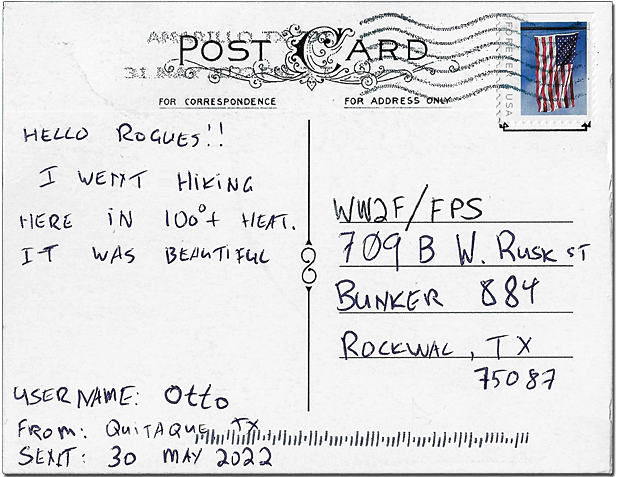 AMARILLO TX
31 MAY
POST CARD
FOR CORRESPONDENCE
FOR ADDRESS ONLY
FOREVER USA
HELLO ROGUES!!
I WENT HIKING
HERE IN 100°+ HEAT.
IT WAS BEAUTIFUL
WW2F/FPS
709 B W. RUSK ST
BUNKER 884
ROCKWAL, TX
75087
USERNAME: Otto
FROM: QUITAQUE TX
SENT: 30 MAY 2022